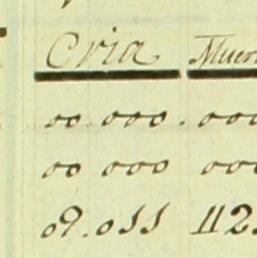 Cria
00 000. 000
00 000 000
09.011 112.